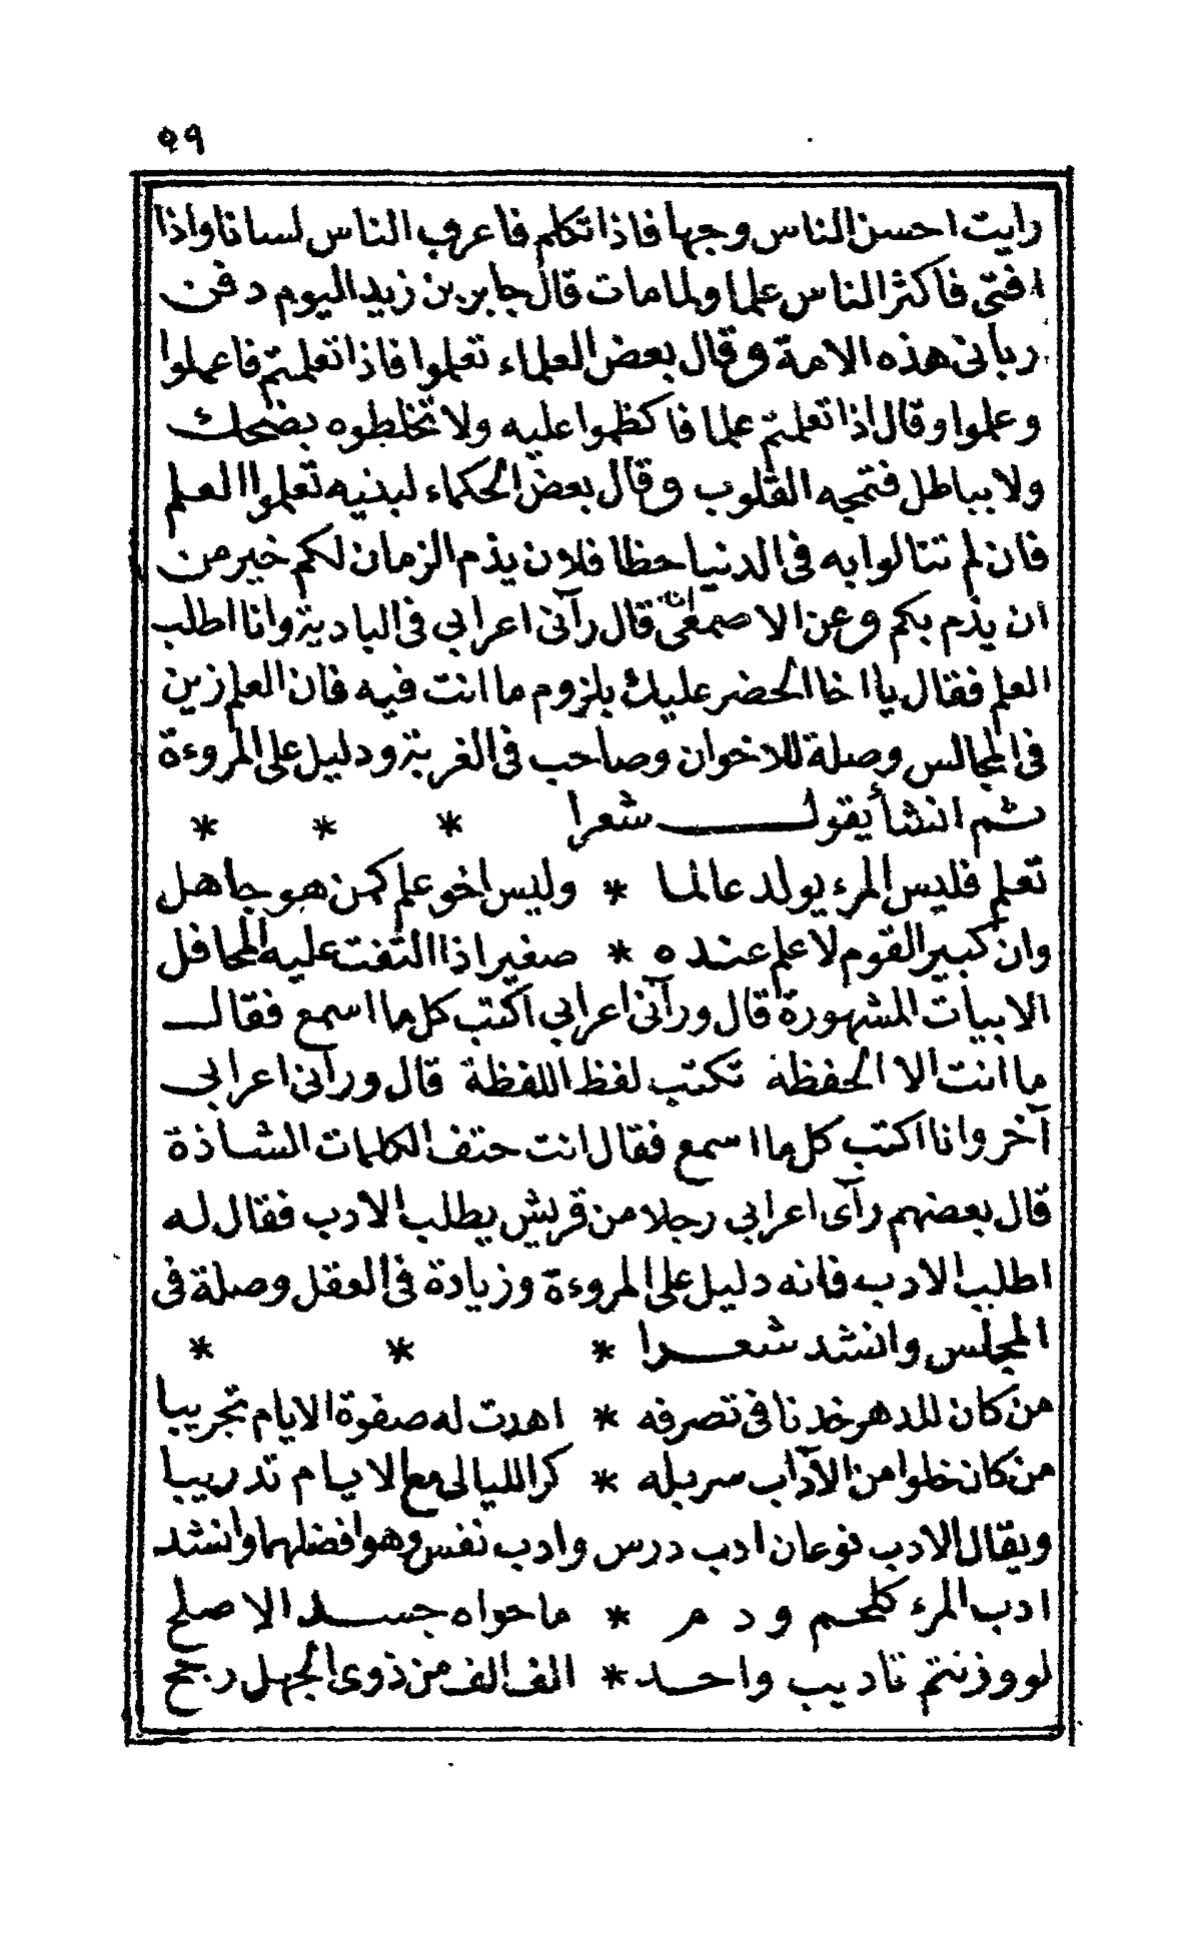 ٥٩
رايت احسن الناس وجها فاذا تكلم فاعرب الناس لسانا واذا
افتى فاكثر الناس علما ولما مات قال جابر بن زيد اليوم دفن
ربانى هذه الامة وقال بعض العلماء تعلموا فاذا تعلمتم فاعملوا
وعلموا وقال اذا تعلمتم علما فاكظموا عليه ولا تخلطوه بضحك
ولا بباطل فتمجه القلوب وقال بعض الحكماء لبنيه تعلموا العلم
فان لم تنالوا به فى الدنيا حظا فلان يذم الزمان لكم خير من
ان يذم بكم وعن الاصمعى انه قال رآنى اعرابي فى البادية وانا اطلب
العلم فقال يا اخا الحضر عليك بلزوم ما انت فيه فان العلم زين
فى المجالس وصلة للاخوان وصاحب فى الغربة ودليل على المروءة
ثم انشأ يقول شعرا * * *
تعلم فليس المرء يولد عالما * وليس اخو علم كمن هو جاهل
وان كبير القوم لا علم عنده * صغير اذا التفت عليه المحافل
الابيات المشهورة قال ورآنى اعرابي اكتب كل ما اسمع فقال
ما انت الا الحفظة تكتب لفظ اللفظة قال ورآنى اعرابى
آخر وانا اكتب كل ما اسمع فقال انت حتف الكلمات الشاذة
قال بعضهم رآى اعرابي رجلا من قريش يطلب الادب فقال له
اطلب الادب فانه دليل على المروءة وزيادة فى العقل وصلة فى
المجلس وانشد شعرا * * *
من كان للدهر خدنا فى تصرفه * اهدت له صفوة الايام تجريبا
من كان خلوا من الآداب سربله * كر الليالى مع الايام تدريبا
ويقال الادب نوعان ادب درس وادب نفس وهو افضلهما وانشد
ادب المرء كلحم ودم * ما حواه جسد الا صلح
لو وزنتم تاديب واحد * الف الف من ذوى الجهل رجح